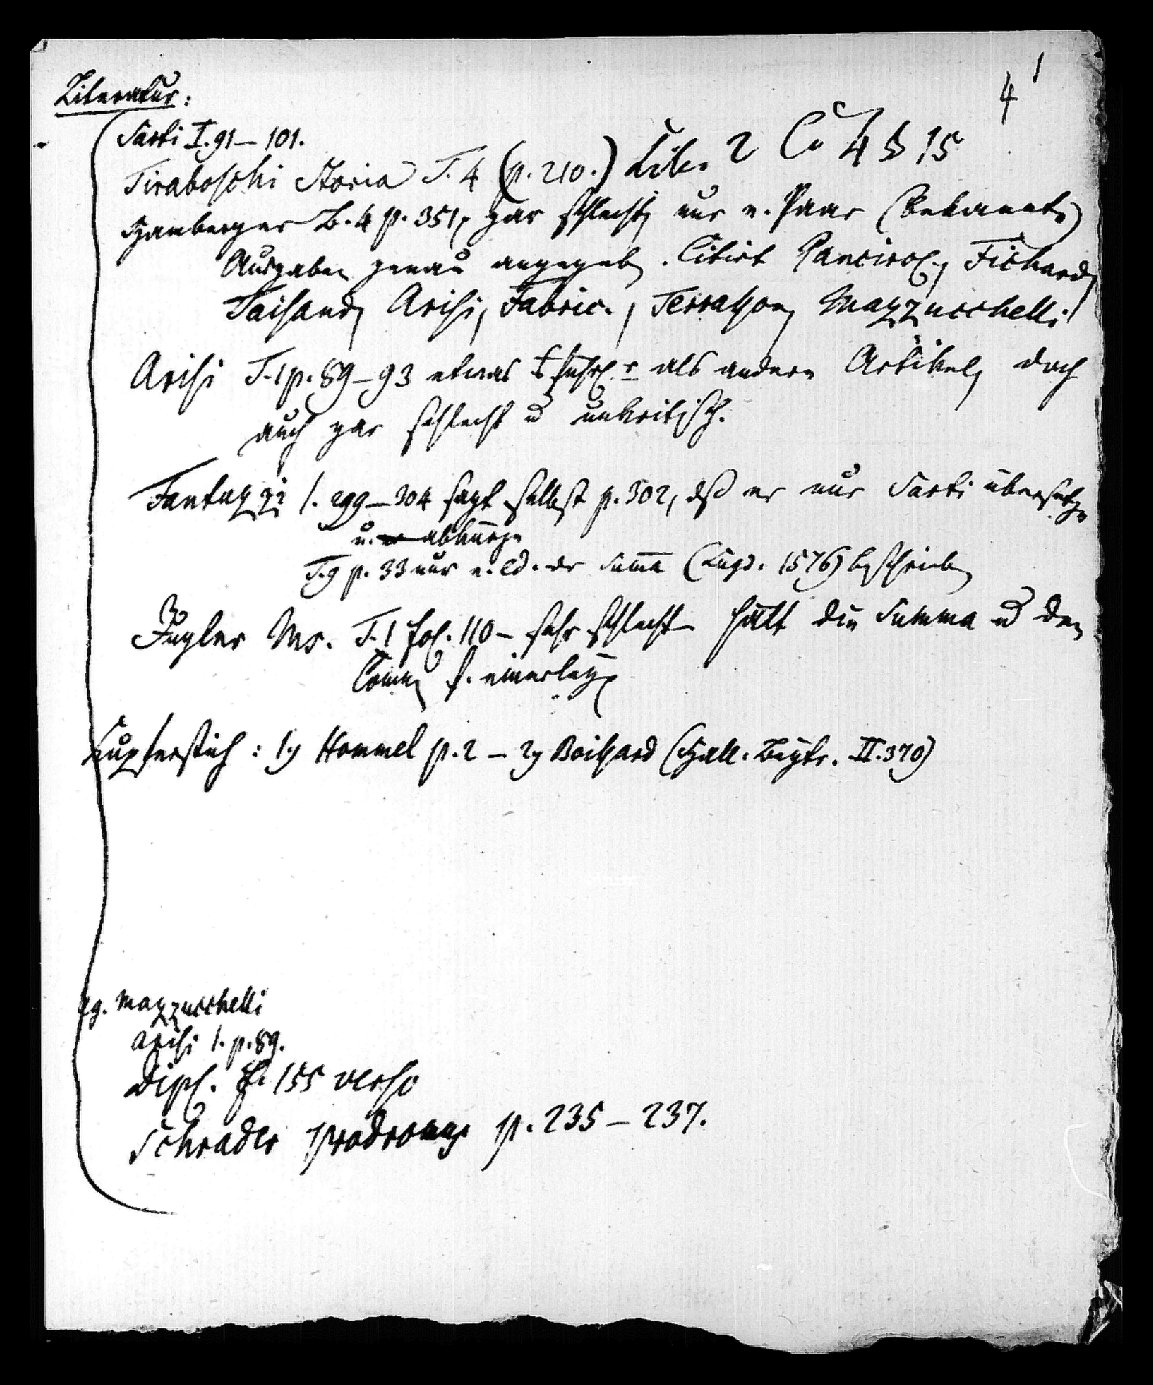 4 1
Literatur:
Sarti I. 91–101.
Tiraboschi Storia T. 4 (p. 210.) Lib. 2 C. 4 § 15
Hamberger B. 4 p. 351, gar schlecht, nur e. Paar (bekannte)
Ausgaben genau angegeben. Citirt Pancirol., Fichard,
Taisand, Arisi, Fabric., Terrasson, Mazzucchelli
Arisi T. 1 p. 89–93 etwas als andere Artikel, doch
auch gar schlecht u unkritisch.
Fantuzzi 1. 299–304 sagt selbst p. 302, dß er nur Sarti übersetze
u. abkürze
T. 9 p. 33 nur e. Ed. der Summa (Lugd. 1576) beschrieben
Jugler Ms. T. 1 fol. 110– sehr schlecht– hält die Summa u den
Comm. f. einerley
Kupferstich: 1) Hommel p. 2 – 2) Boissard (Hall. Beytr. II. 370)
Mazzucchelli
Arisi 1. p. 89.
Dipl. f. 155 verso
Schrader prodromus p. 235–237.